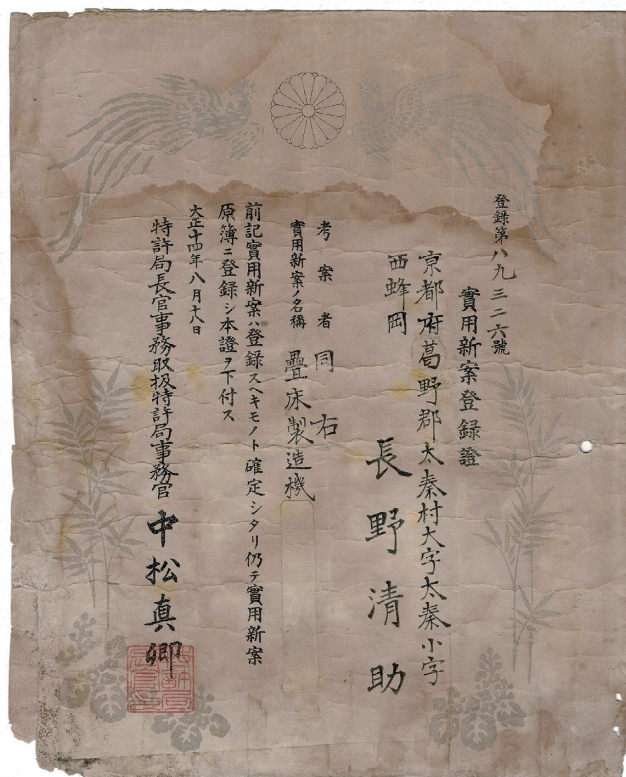 登録第八九三二六號
實用新案登録證
京都府葛野郡太秦村大字太秦小字
西蜂岡
長野清助
考案者 同右
實用新案ノ名稱 疊床製造機
前記實用新案ハ登録スヘキモノト確定シタリ仍テ實用新案
原簿ニ登録シ本證ヲ下付ス
大正十四年八月十八日
特許局長官事務取扱特許局事務官 中松真卿